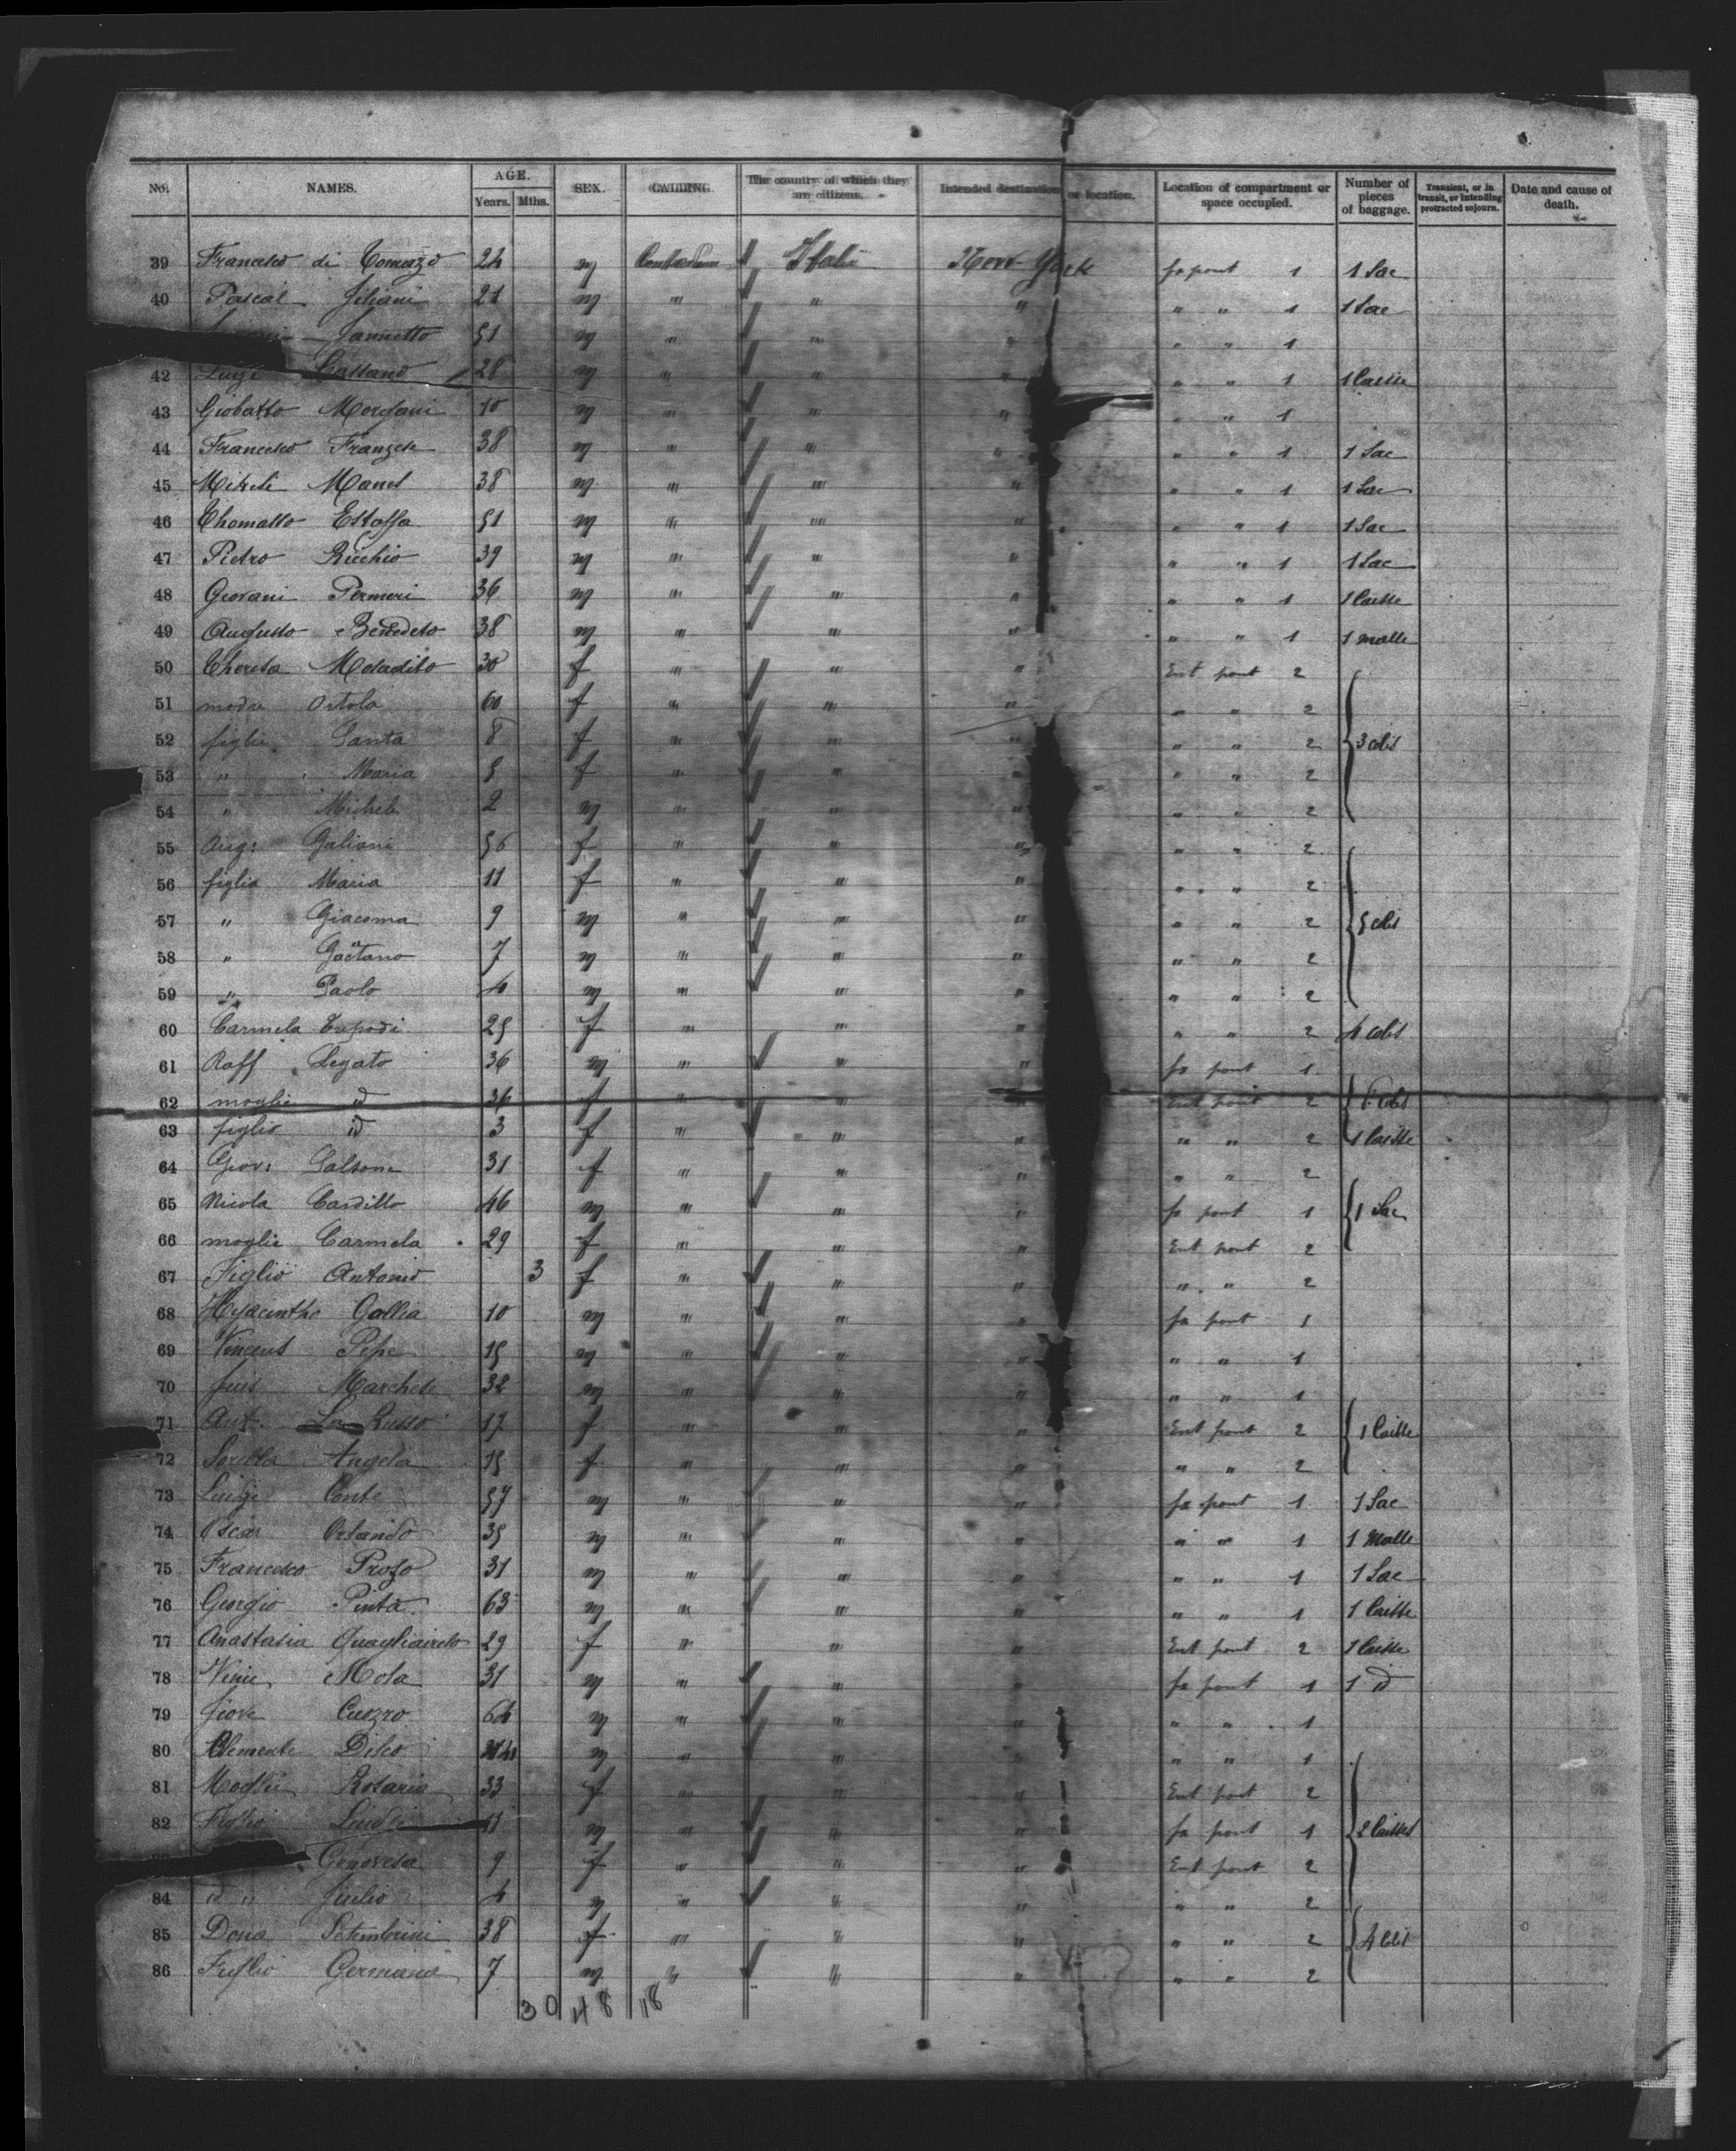 No. NAMES. AGE. Years. Mths. SEX. CALLING. The country of which they are citizens. Intended destination or location. Location of compartment or space occupied. Number of pieces of baggage. Transient, or in transit, or intending protracted sojourn. Date and cause of death.
39 Francesco di Tomazo 24 m Italie New-York fx pont 1 1 Sac
40 Pascal Jiliani 21 m " " " " " 1 1 Sac
Jannetto 51 m " " " " " 1
42 Luigi Cassano 28 m " " " " " 1 1 Caisse
43 Giobatto Morgani 10 m " " " " " 1
44 Francesco Franzese 38 m " " " " " 1 1 Sac
45 Michele Manes 38 m " " " " " 1 1 Sac
46 Thomasso Estaffa 51 m " " " " " 1 1 Sac
47 Pietro Ricchio 39 m " " " " " 1 1 Sac
48 Giovani Permeri 36 m " " " " " 1 1 Caisse
49 Augusto Benedeto 38 m " " " " " 1 1 malle
50 Theresa Mosadito 30 f " " " Ent pont 2
51 madre Ortola 60 f " " " " " 2
52 figlie Santa 8 f " " " " " 2 3 colis
53 " Maria 5 f " " " " " 2
54 " Michele 2 m " " " " " 2
55 Aug: Galiani 56 f " " " " " 2
56 figlia Maria 11 f " " " " " 2
57 " Giacoma 9 m " " " " " 2 5 colis
58 " Gaëtano 7 m " " " " " 2
59 " Paolo 4 m " " " " " 2
60 Carmela Trepodi 25 f " " " " " 2 4 colis
61 Raff Legato 36 m " " " fx pont 1
62 moglie id 36 f " " " Ent pont 2 colis
63 figlio id 3 f " " " " " 2 1 Caisse
64 Giov: Salsone 31 f " " " " " 2
65 Nicola Cardillo 46 m " " " fx pont 1 1 Sac
66 moglie Carmela 29 f " " " Ent pont 2
67 Figlio Antonio 3 f " " " " " 2
68 Hyacintho Gallia 10 m " " " fx pont 1
69 Vincent Pepe 15 m " " " " " 1
70 Marchese 32 m " " " " " 1
71 Ant. Lo Russo 17 f " " " Ent pont 2 1 Caisse
72 Sorella Angela 15 f " " " " " 2
73 Luigi Conte 57 m " " " fx pont 1 1 Sac
74 Oscar Orlando 35 m " " " " " 1 1 Malle
75 Francesco Prozo 31 m " " " " " 1 1 Sac
76 Giorgio Pinta 63 m " " " " " 1 1 Caisse
77 Anastasia Quagliaircto 29 f " " " Ent pont 2 1 Caisse
78 Mola 31 m " " " fx pont 1 1 id
79 Jiove Cuozzo 64 m " " " " " 1
80 Clemente Disco m " " " " " 1
81 Moglie Rosaria 33 f " " " Ent pont 2
82 Figlio 11 m " " " fx pont 1 2 Caisses
Genovesa 9 f " " " Ent pont 2
84 id " Julio 4 m " " " " " 2
85 Dona Setembrini 38 f " " " " " 2 4 Colis
86 Figlio Germano 7 m " " " " " 2
30 48 18